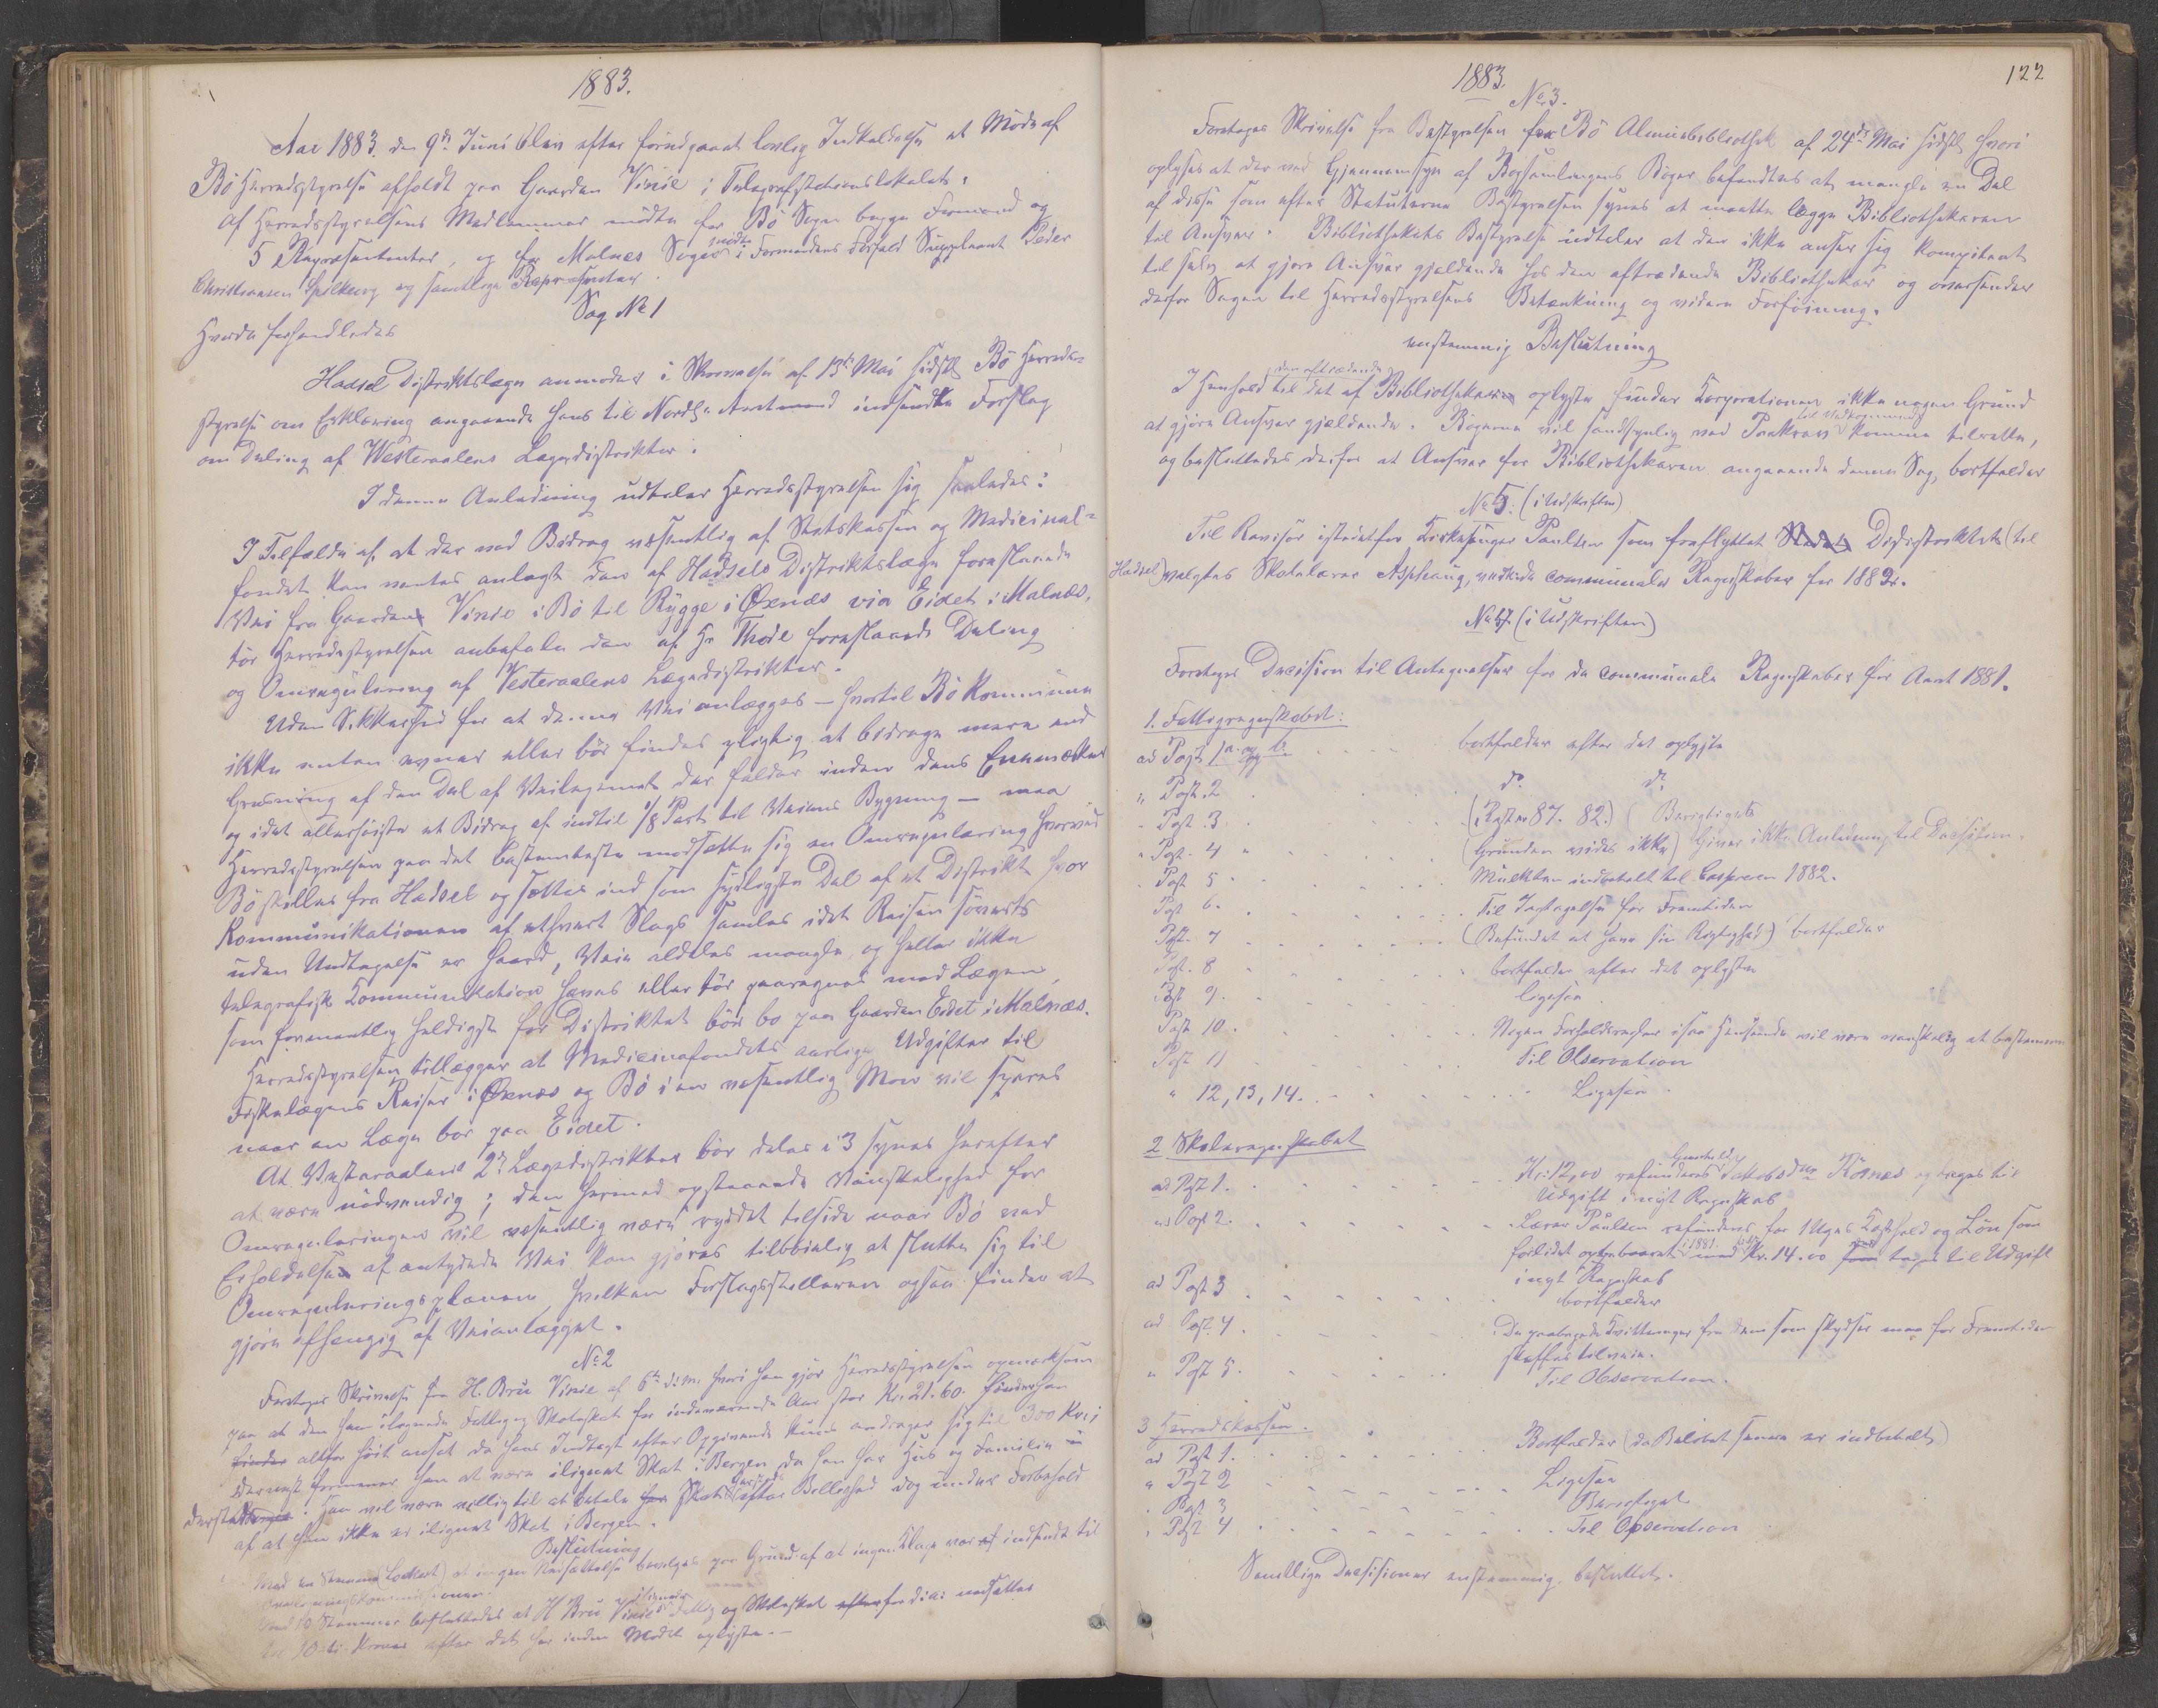 1883.
Aar 1883 den 9de Juni blev efter forudgaaet lovlig Indkaldelse et Møde af
Bö Herredsstyrelse afholdt paa Gaarden Vinie i Telegrafstationslokalet.
Af Herredsstyrelsens Medlemmer mødte for Bö Sogn begge Formænd og
5 Repræsentanter, og for Malnes Sogn mødte i Formandens Forfald Suppleant Peder
Christiansen Spilberg og samtlige Repræsentanter.
Sag No 1
Hvorda forhandledes
Hadsel Distriktslæge anmoder i Skrivelse af 13de Mai sidstl. Bö Herreds-
styrelse om Erklæring angaaende hans til Nordl. Amtmand indsendte Forslag
om Deling af Westeraalens Lægedistrikter.
I denne Anledning udtaler Herredsstyrelsen sig saaledes:
I Tilfælde af at der ved Bidrag væsentlig af Statskassen og Medicinal-
fondet kan ventes anlagt den af Hadsels Distriktslæge foreslaaede
Vei fra Gaarden Vinie i Bö til Rygge i Øxnæs via Eidet i Malnæs,
tør Herredsstyrelsen anbefale den af Hr Thode foreslaaede Deling
og Omregulering af Vesteraalens Lægedistrikter.
Uden Sikkerhed for at denne Vei anlægges – hvortil Bö Kommune
ikke enten evner eller bør findes pligtig at bidrage mere end
Grusning af den Del af Veilegemet der falder inden dens Enemærker
og idet allerhøiste et Bidrag af indtil 1/8 Part til Veiens Bygning – maa
Herredsstyrelsen paa det bestemteste modsætte sig en Omregulering hvorved
Bö skilles fra Hadsel og sættes ind som sydligste Del af et Distrikt hvor
Kommunikationen af ethvert Slags savnes idet Reisen søværts
uden Undtagelse er haard, Veie aldeles mangle, og heller ikke
telegrafisk Kommunikation haves eller tør paaregnes med Lægen,
som formentlig heldigst for Distriktet bör bo paa Gaarden Eidet i Malnæs.
Herredsstyrelsen tillægger at Medicinalfondets aarlige Udgifter til
Fiskelægens Reiser i Øxnæs og Bö i en væsentlig Mon vil spares
naar en Læge bor paa Eidet.
At Vesteraalens 2de Lægedistrikter bör deles i 3 synes herefter
at være nødvendig; den hermed opstaaende Vanskelighed for
Omreguleringen vil væsentlig være ryddet tilside naar Bö ved
Erholdelsen af antydede Vei kan gjøres tilbøielig at slutte sig til
Omreguleringsplanen, hvilken Forslagsstilleren ogsaa finder at
gjøre afhængig af Veianlægget.
No 2
Foretages Skrivelse fra H. Bru Vinie af 6te ds. hvori han gjør Herredsstyrelsen opmærksom
paa at den ham ilignede Fattig og Skoleskat for indeværende Aar stor Kr. 21.60 finder han
finder altfor høit ansat da hans Indtægt efter Opgivende kun andrager sig til 300 Kr. i
dernest formener han at være ilignet Skat i Bergen, da han har Hus og Familie
dersteds. Han vil være villig til at betale for Skat efter Billighed dog under Forbehold
af at han ikke er ilignet Skat i Bergen.
Beslutning
Mod en Stemme (Lockert) at ingen Nedsættelse bevilges paa Grund af at ingen Klage var indsendt til
Ligningskommissionen.
Med 10 Stemmer besluttedes at H Bru Vinies ilignede Fattig og Skoleskat nedsættes
til 10 ti Kroner efter det her inden Mødet oplyste. –
1883.
122
No 3.
Foretages Skrivelse fra Bestyrelsen for Bö Almuebibliothek af 24de Mai sidstl. hvori
oplyses at der ved Gjennemsyn af Bogsamlingens Bøger befandtes at mangle en Del
af disse som efter Statuterne Bestyrelsen synes at maatte lægge Bibliothekaren
til Ansvar. Bibliothekets Bestyrelse udtaler at den ikke anser sig kompetent
til selv at gjøre Ansvar gjældende hos den aftrædende Bibliothekar og oversender
derfor Sagen til Herredsstyrelsens Betænkning og videre Forføining.
enstemmig Beslutning
I Henhold til det af den aftrædende Bibliothekaren oplyste finder Korporationen ikke nogen Grund
at gjøre Ansvar gjældende. Bøgerne vil sandsynlig ved Paakrav til Vedkommende komme tilrette,
og besluttedes derfor at Ansvar for Bibliothekaren angaaende denne Sag, bortfalder
No 5. (i Udskriften)
Til Revisor istedetfor Kirkesanger Paulsen som fraflyttet Stedet Distriktet (til
Hadsel) valgtes Skolelærer Asphaug, vedkde communale Regnskaber for 1882.
No 4 (i Udskriften)
Foretages Decision til Antegnelser for de communale Regnskaber for Aaret 1881.
1. Fattigregnskabet:
ad Post 1 a og b. bortfalder efter det oplyste
" Post 2 do do
" Post 3. (Post 87. 82.) (Berigtiget)
" Post 4 (Grunden vides ikke) Giver ikke Anledning til Decision.
" Post 5 Mulkten indbetalt til Casseren 1882.
Post 6. Til Iagttagelse for Fremtiden
Post 7 (Befundet at have sin Rigtighed) bortfalder
Post 8 bortfalder efter det oplyste
Post 9. ligesaa
Post 10. Nogen Forholdsregler i saa Henseende vil være vanskelig at bestemme
Post 11 Til Observation
" 12, 13, 14. Ligesaa
2 Skoleregnskabet
ad Post 1. Kr. 12,00 refunderes Jakobsen Rönæs og tages til
Udgift i nyt Regnskab
ad Post 2. Lærer Paulsen refunderes for 1 Uges Kosthold og Løn som
forlidet oppebaaret i 1881 med Kr. 14.00 som tages til Udgift
i nyt Regnskab
ad Post 3 bortfalder
ad Post 4. De paaberaabte Kvitteringer fra dem som skydser maa for Fremtiden
skaffes tilveie.
" Post 5. Til Observation.
3 Herredskassen.
ad Post 1. Bortfalder (da Beløbet senere er indbetalt)
" Post 2 Ligesaa
" Post 3 Berigtiget
" Post 4 Til Observation
Samtlige Decisioner enstemmig besluttet.